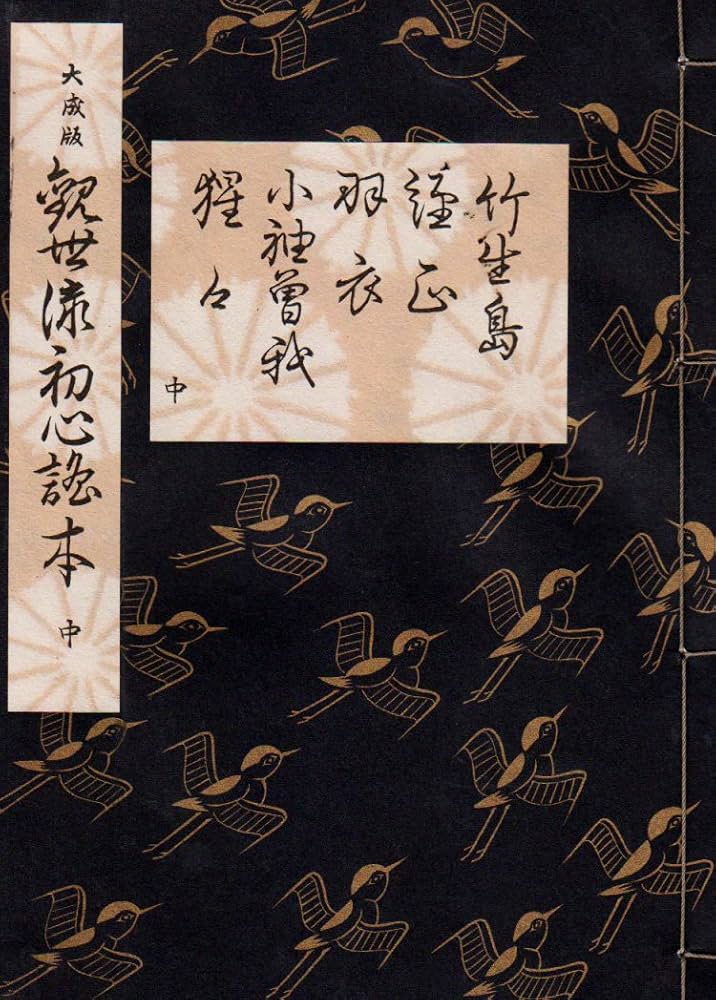 竹生島
經正
羽衣
小袖曽我
猩々
中
大成版 觀世流初心謠本 中